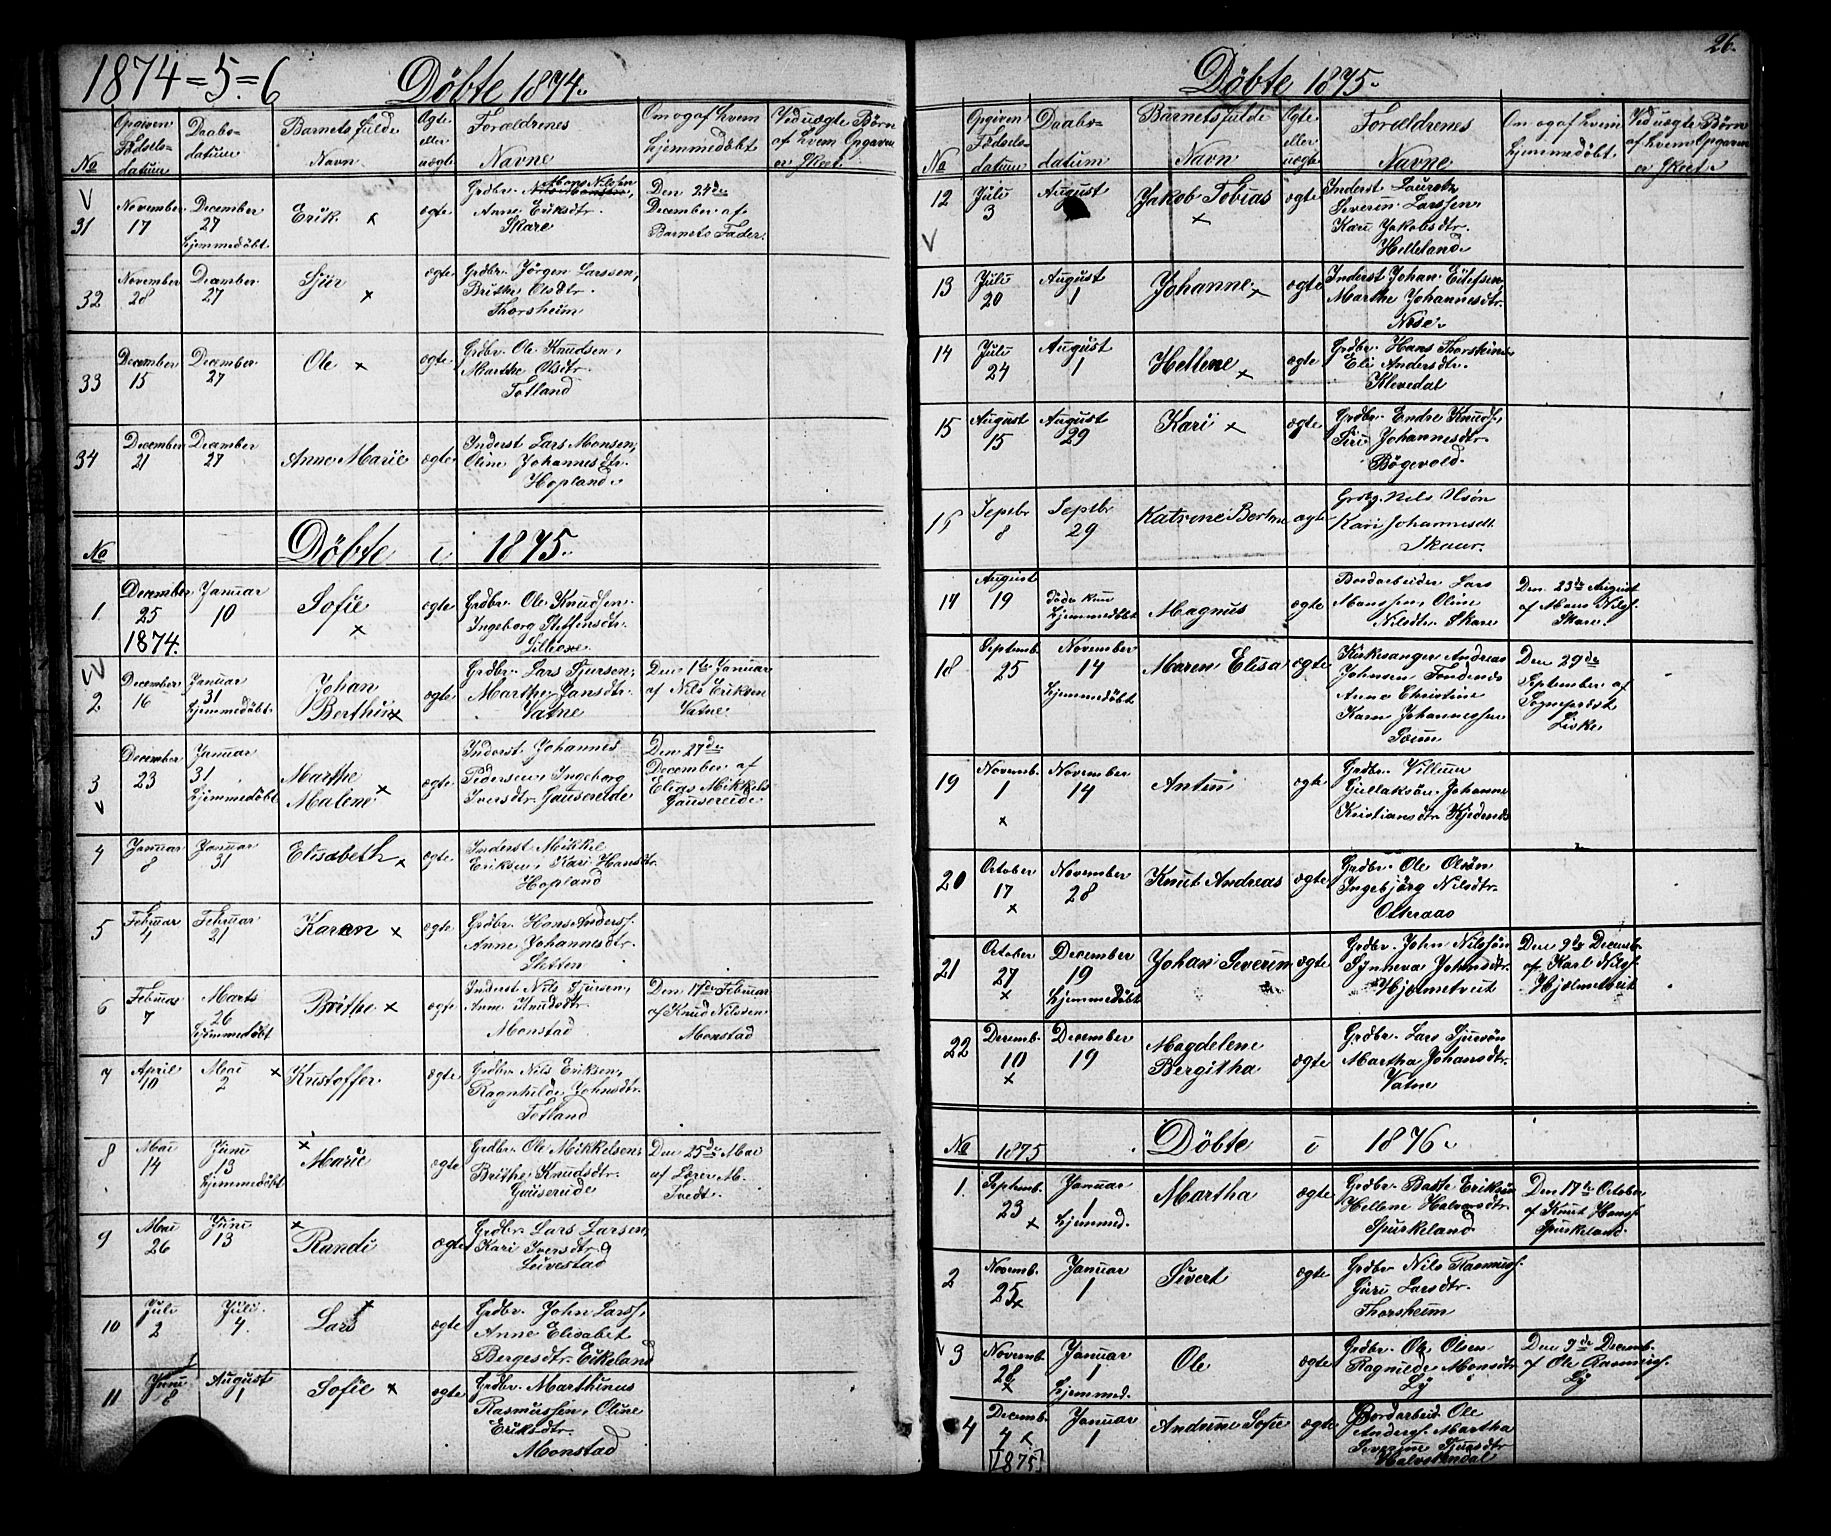 1874=5=6
Döbte 1874.
No
Opgiven Födsels-datum
Daabs-datum
Barnets fulde Navn
Ægte eller uægte
Forældrenes Navne
Om og af hvem hjemmedöbt
Ved uægte Börn af hvem Opgaven er skeet
31 November 17 December 27 hjemmedöbt Erik x ægte
Grdbr. Mons Nilsen,
Anne Eriksdtr.
Skare
Den 24de
December af
Barnets Fader.
32 November 28 December 27 Sjur x ægte
Grdbr. Jörgen Larssen,
Brithe Olsdtr.
Thorsheim
33 December 15 December 27 Ole x ægte
Grdbr. Ole Knudsen,
Marthe Olsdtr.
Totland
34 December 21 December 27 Anne Marie ægte
Inderst Lars Monsen,
Oline Johannesdtr.
Hopland.
No Döbte i 1875.
1. December 25 1874. Januar 10 Sofie x ægte
Grdbr. Ole Knudsen.
Ingeborg Steffensdtr.
2 December 16 Januar 31 hjemmedöbt Johan Berthin x ægte
Grdbr. Lars Sjursen,
Marthe Hansdtr.
Vatne
Den 1te Januar
af Nils Eriksen
Vatne
3 December 23 Januar 31 hjemmedöbt Marthe Malene x ægte
Inderst Johannes
Pedersen, Ingeborg
Iversdtr. Gausereide
Den 27de
December af
Elias Mikkels.
Gausereide
4 Januar 8 Januar 31 Elisabeth x ægte
Inderst Mikkel
Eriksen, Kari Hansdtr.
Hopland
5 Februar 4 Februar 21 Karen x ægte
Grdbr. Hans Anderss.
Anne Johannesdtr.
Sletten
6 Februar 7 Marts 26 hjemmedöbt Brithe x ægte
Inderst Nils Sjursen,
Anne Knudsdtr.
Monstad
Den 17de Februar
af Knud Nilssen
Monstad
7 April 10 Mai 2 x Kristoffer ægte
Grdbr. Nils Eriksen,
Ragnhilde Johnsdtr.
Totland
8 Mai 14 Juni 13 hjemmedöbt x Marie ægte
Grdbr. Ole Mikkelsen,
Brithe Knudsdtr.
Gausereide
Den 25de Mai
af Lærer M.
Tvedt.
9 Mai 26 Juni 13 x Randi ægte
Grdbr. Lars Larsen,
Kari Iversdtr.
Leivestad
10 Juli 2 Juli 4. Lars x ægte
Grdbr. John Larss,
Anne Elisabet
Bergesdtr. Eikeland
11 Juni 8 August 1 Sofie x ægte
Grdbr. Marthinus
Rasmussen, Oline
Eriksdtr.
Monstad
26.
Döbte 1875.
No
Opgiven Födsels-datum
Daabs-datum
Barnets fulde Navn
Ægte eller uægte
Forældrenes Navne
Om og af hvem hjemmedöbt
Ved uægte Börn af hvem Opgaven er skeet.
12 Juli 3 August Jakob Tobias x ægte
Inderst Lauretz
Severin Larssen,
Kari Jakobsdtr.
Helleland
13 Juli 20 August 1 Johanne x ægte
Inderst Johan Eilefsen
Marthe Johannesdtr.
14 Juli 24 August 1 Hellene x ægte
Grdbr. Hans
Eli Andersdtr.
Klevedal
15 August 15 August 29 Kari x ægte
Grdbr. Endre Knuds.
Siri Johannesdtr.
Bögevold.
16 Septbr 8 Septbr 29 Katrine ægte
Nels
Kari Johannesdt
Skaur.
17 August 19 döde kun hjemmedöbt Magnus ægte
Bordarbeider Lars
Monssen, Oline
Nilsdtr. Skare
Den 23de August
af Mons Nilss.
Skare.
18 Septemb. 25 November 14 hjemmedöbt Maren Elisa ægte
Kirkesanger Andreas
Johnsen
Anna Christine
Karn Johannessen
Den 29de
September af
Sogneprest
19 Novemb. 1 x November 14 Anton ægte
Grdbr. Villum
Gullaksön. Johanne
Kristiansdtr
20 October 17 x November 28 Knut Andreas ægte
Grdbr. Ole Olsön
Ingebjörg Nilsdtr.
Otteraas
21 October 27 x December 19 hjemmedöbt Johan Severin ægte
Grdbr. John Nilssön
Synneva Johnsdtr.
Hjelmetveit
Den 9de Decemb.
af Karl Nilss.
Hjelmetveit
22 Decemb. 10 x December 19 Magdelene Bergitha ægte
Grdbr. Lars Sjursön
Martha Johansdtr.
Vatne
No 1875 Döbte i 1876.
1. Septemb. 23 x Januar 1 hjemmed. Martha ægte
Grdbr. Baste Eriksön
Hellene Halvorsdtr.
Spurkeland
Den 17de October
af Knut Hanss.
Spurkeland.
2 Novemb. 25 x Januar 1 Sivert ægte
Grdbr. Nils Rasmuss.
Guri Larsdtr.
Thorsheim
3 Novemb. 28 x Januar 1 hjemmed. Ole ægte
Grdbr. Ole Olsen
Ragnilde Monsdtr
Ly
Den 9de Decemb.
af Ole Rasmuss.
Ly
4 Decemb. 4 x 1875 Januar 1 Andrine Sofie ægte
Bordarbeid. Ole
Anderss. Martha
Severine Sjursdtr